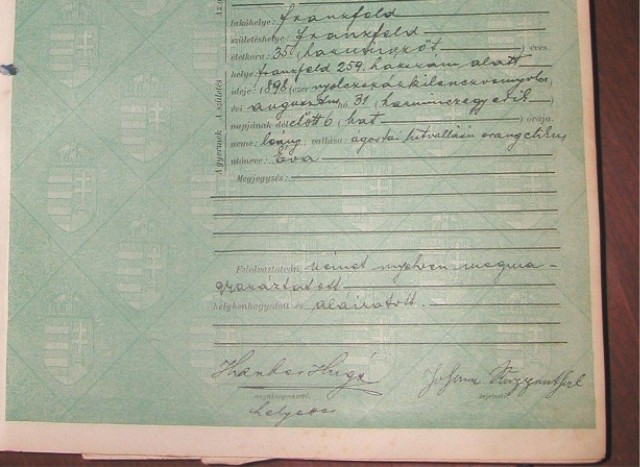 lakóhelye: Franzfeld
születéshelye: Franzfeld
életkora: 35 (harminczöt) éves
helye: Franzfeld 259. házszám alatt
ideje: 1898 (ezer nyolczszázkilenczvennyolcz)
évi augusztus hó 31 (harminczegyedik)
napjának délelőtt 6 (hat) órája.
neme: leány; vallása: ágostai hitvallású evangelikus
utóneve: Éva
A gyermek
A születés
Megjegyzés:
Felolvastatván, német nyelven megma-
gyaráztatott
helybenhagyatott és aláiratott.
Hugó
anyakönyvvezető.
helyettes
Johann
bejelentő.